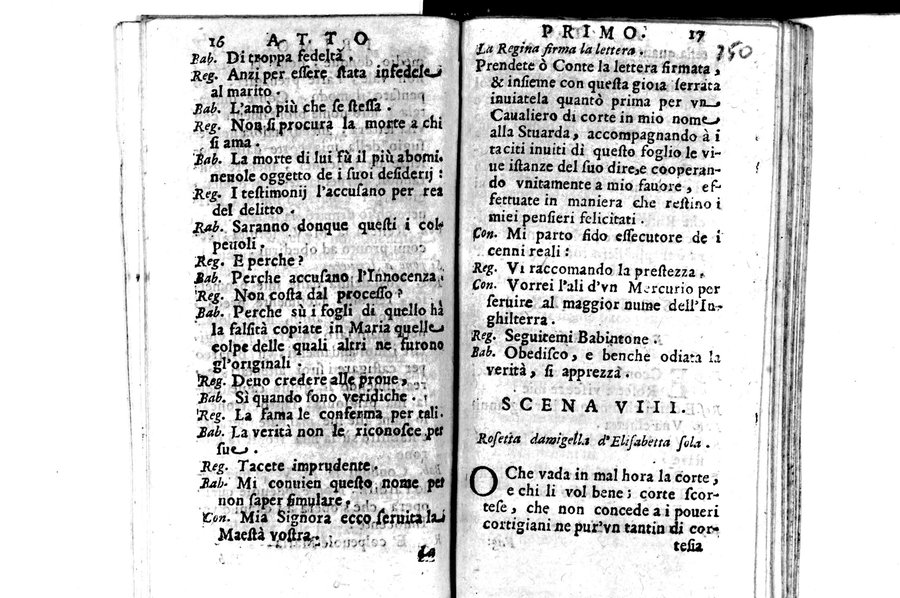 16 ATTO
Bab. Di troppa fedeltà.
Reg. Anzi per eſſere ſtata infedele
al marito.
Bab. L'amò più che ſe ſteſſa.
Reg. Non ſi procura la morte a chi
ſi ama.
Bab. La morte di lui fù il più abomi.
neuole oggetto de i ſuoi deſiderij:
Reg. I teſtimonij l'accuſano per rea
del delitto.
Bab. Saranno donque queſti i col-
peuoli.
Reg. E perche?
Bab. Perche accuſano l'Innocenza.
Reg. Non coſta dal proceſſo?
Bab. Perche sù i fogli di quello hà
la falſità copiate in Maria quelle
colpe delle quali altri ne furono
gl'originali.
Reg. Deuo credere alle proue,
Bab. Sì quando ſono veridiche.
Reg. La fama le conferma per tali.
Bab. La verità non le riconoſce per
ſue.
Reg. Tacete imprudente.
Bab. Mi conuien queſto nome per
non ſaper ſimulare.
Con. Mia Signora ecco ſeruita la
Maeſtà voſtra.
La
PRIMO. 17
350
La Regina firma la lettera.
Prendete ò Conte la lettera firmata,
& inſieme con queſta gioia ſerrata
inuiatela quantò prima per vn
Caualiero di corte in mio nome
alla Stuarda, accompagnando à i
taciti inuiti di queſto foglio le vi-
ue iſtanze del ſuo dire, e cooperan-
do vnitamente a mio fauore, ef-
fettuate in maniera che reſtino i
miei penſieri felicitati.
Con. Mi parto fido eſſecutore de i
cenni reali:
Reg. Vi raccomando la preſtezza.
Con. Vorrei l'ali d'vn Mercurio per
ſeruire al maggior nume dell'In-
ghilterra.
Reg. Seguitemi Babintone.
Bab. Obediſco, e benche odiata la
verità, ſi apprezza.
SCENA VIII.
Roſetta damigella d'Eliſabetta ſola.
O Che vada in mal hora la corte,
e chi li vol bene; corte ſcor-
teſe, che non concede a i poueri
cortigiani ne pur'vn tantin di cor-
teſia